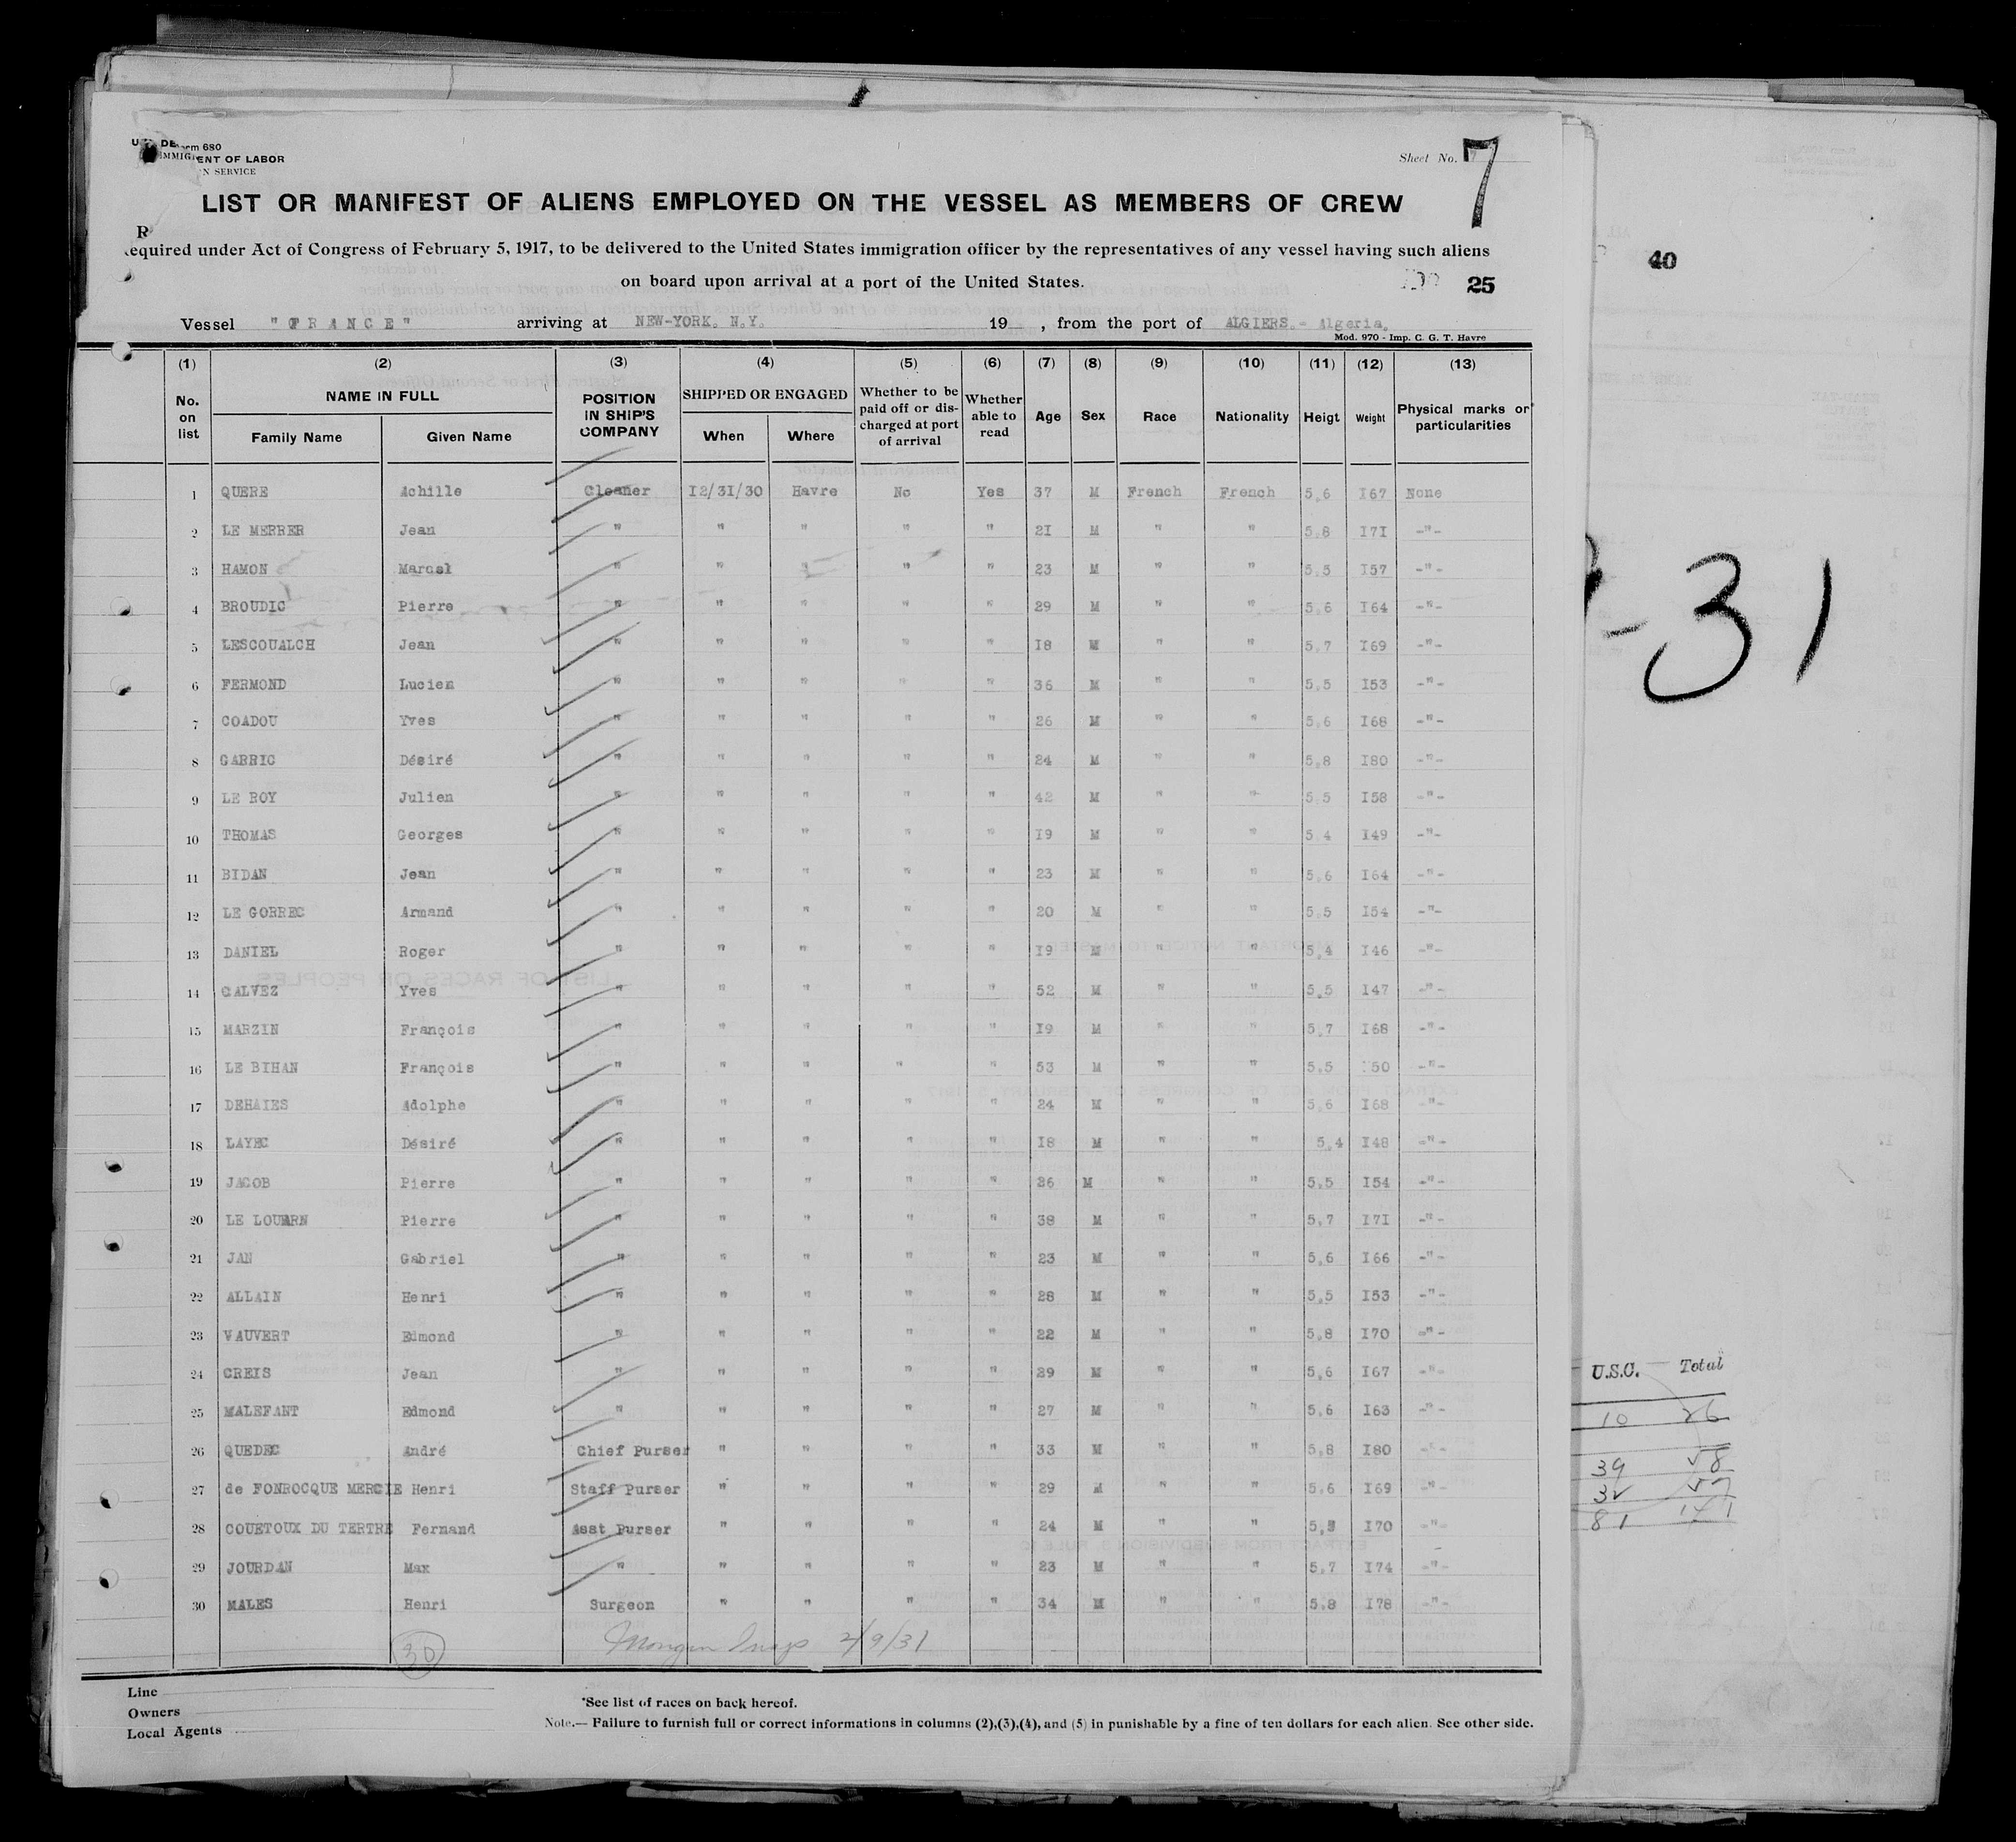 Form 680
ENT OF LABOR
N SERVICE
Sheet No. 7
LIST OR MANIFEST OF ALIENS EMPLOYED ON THE VESSEL AS MEMBERS OF CREW
Required under Act of Congress of February 5, 1917, to be delivered to the United States immigration officer by the representatives of any vessel having such aliens
on board upon arrival at a port of the United States.
25
40
Vessel "FRANCE" arriving at NEW-YORK. N.Y. 19 , from the port of ALGIERS.- Algeria.
Mod. 970 - Imp. C. G. T. Havre
(1) (2) (3) (4) (5) (6) (7) (8) (9) (10) (11) (12) (13)
No. on list NAME IN FULL Family Name Given Name POSITION IN SHIP'S COMPANY SHIPPED OR ENGAGED When Where Whether to be paid off or discharged at port of arrival Whether able to read Age Sex Race Nationality Heigt Weight Physical marks or particularities
1 QUERE Achille Cleaner I2/31/30 Havre No Yes 37 M French French 5,6 I67 None
2 LE MERRER Jean " " " " " 2I M " " 5,8 I7I -"-
3 HAMON Marcel " " " " " 23 M " " 5,5 I57 -"-
4 BROUDIC Pierre " " " " " 29 M " " 5,6 I64 -"-
5 LESCOUALCH Jean " " " " " I8 M " " 5,7 I69 -"-
6 FERMOND Lucien " " " " " 36 M " " 5,5 I53 -"-
7 COADOU Yves " " " " " 26 M " " 5,6 I68 -"-
8 GARRIC Désiré " " " " " 24 M " " 5,8 I80 -"-
9 LE ROY Julien " " " " " 42 M " " 5,5 I58 -"-
10 THOMAS Georges " " " " " I9 M " " 5,4 I49 -"-
11 BIDAN Jean " " " " " 23 M " " 5,6 I64 -"-
12 LE GORREC Armand " " " " " 20 M " " 5,5 I54 -"-
13 DANIEL Roger " " " " " I9 M " " 5,4 I46 -"-
14 CALVEZ Yves " " " " " 52 M " " 5,5 I47 -"-
15 MARZIN François " " " " " I9 M " " 5,7 I68 -"-
16 LE BIHAN François " " " " " 53 M " " 5,5 I50 -"-
17 DEHAIES Adolphe " " " " " 24 M " " 5,6 I68 -"-
18 LAYEC Désiré " " " " " I8 M " " 5,4 I48 -"-
19 JACOB Pierre " " " " " 36 M " " 5,5 I54 -"-
20 LE LOUARN Pierre " " " " " 38 M " " 5,7 I7I -"-
21 JAN Gabriel " " " " " 23 M " " 5,6 I66 -"-
22 ALLAIN Henri " " " " " 28 M " " 5,5 I53 -"-
23 VAUVERT Edmond " " " " " 22 M " " 5,8 I70 -"-
24 CREIS Jean " " " " " 29 M " " 5,6 I67 -"-
25 MALEFANT Edmond " " " " " 27 M " " 5,6 I63 -"-
26 QUEDEC André Chief Purser " " " " 33 M " " 5,8 I80 -"-
27 de FONROCQUE MERCIE Henri Staff Purser " " " " 29 M " " 5,6 I69 -"-
28 COUETOUX DU TERTRE Fernand Asst Purser " " " " 24 M " " I70 -"-
29 JOURDAN Max " " " " " 23 M " " 5,7 I74 -"-
30 MALES Henri Surgeon " " " " 34 M " " 5,8 I78 -"-
30 2/9/31
-31
U.S.C. Total
10 26
39 58
32 57
81 141
Line
Owners
Local Agents
*See list of races on back hereof.
Note.— Failure to furnish full or correct informations in columns (2),(3),(4), and (5) in punishable by a fine of ten dollars for each alien. See other side.